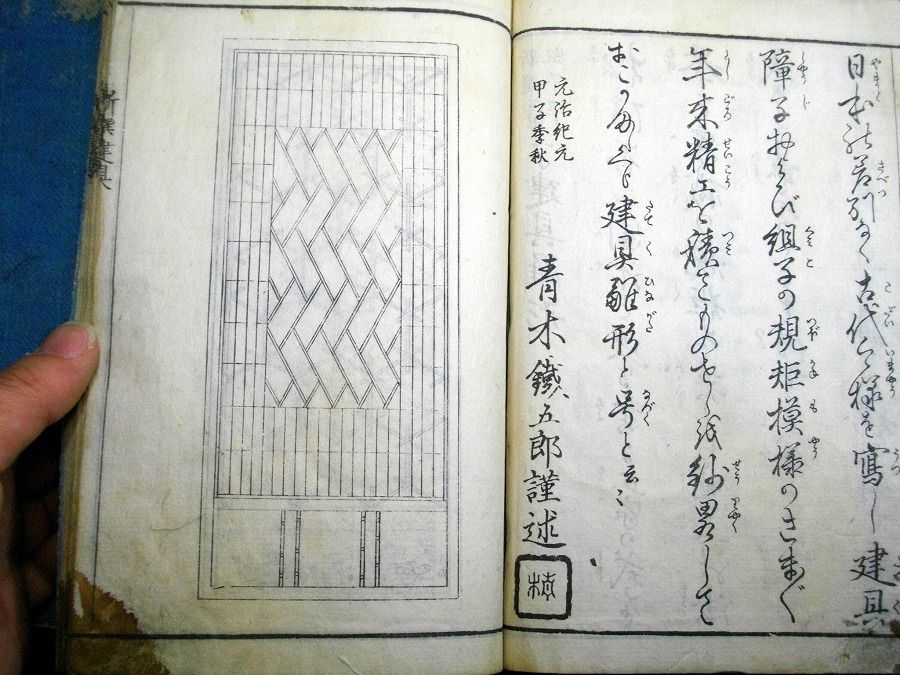 日本の差別なく古代今様を寫し建具
障子および組子の規矩模様のさま〴〵
年来精工を積てものせしを抄畧して
建具雛形と号と云々
元治紀元
甲子季秋
青木鐵五郎謹述
新撰建具